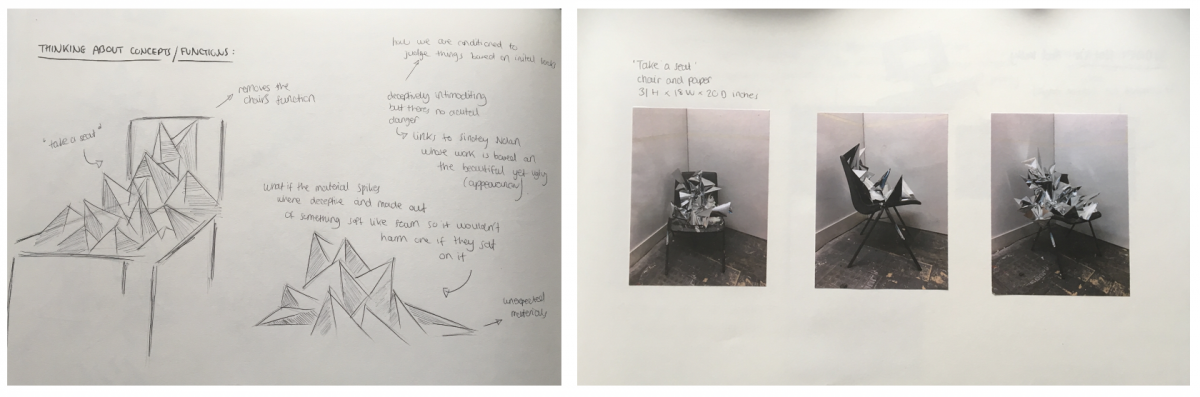 THINKING ABOUT CONCEPTS/FUNCTIONS:
"take a seat"
removes the
chairs function
how we are conditioned to
judge things based on initial looks
deceptively intimidating
but theres no actual
danger
links to Sindey Nolan
whose work is based on
the beautiful yet ugly
(appearance)
what if the material spikes
where deceptive and made out
of something soft like foam so it wouldn't
harm one if they sat
on it
unexpected
materials
'Take a seat'
chair and paper
31 H x 18 W x 20 D inches